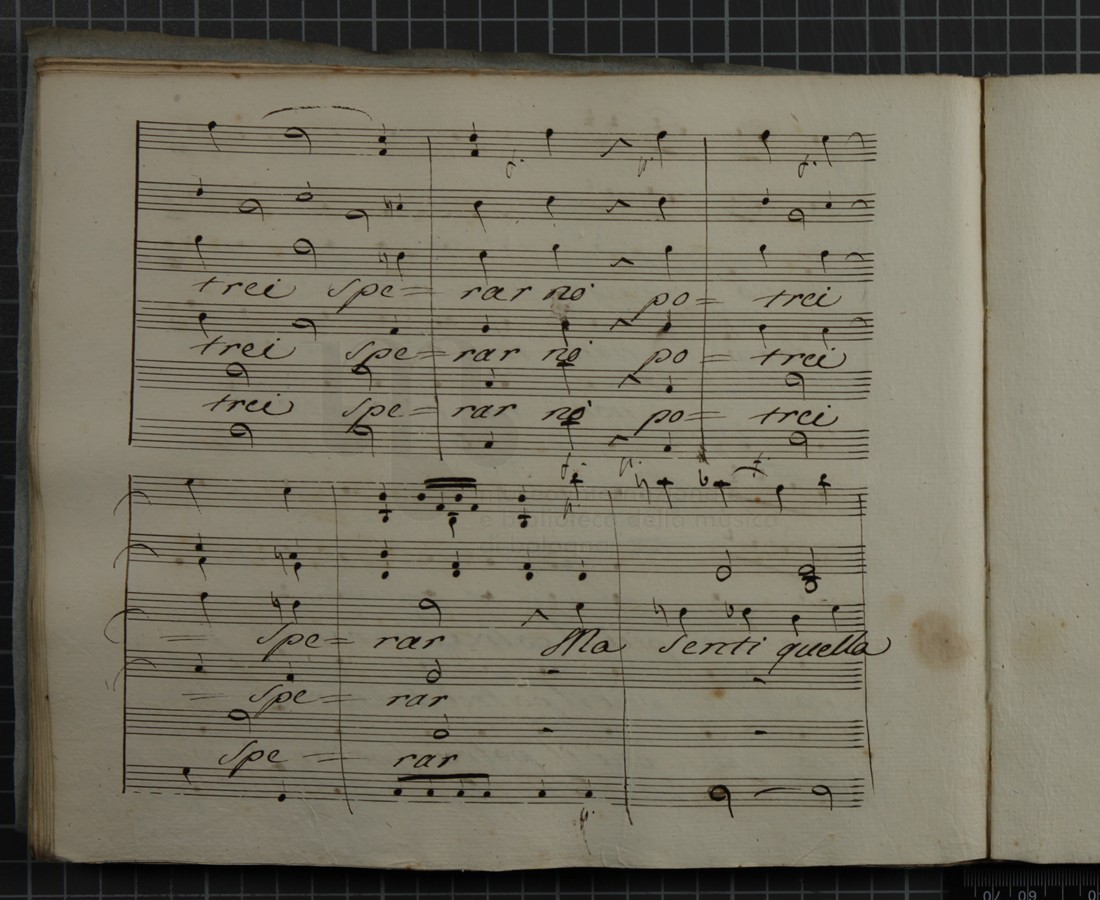 trei spe= rar nò po= trei
trei spe= rar nò po= trei
trei spe= rar nò po= trei
= spe= rar Ma senti quella
= spe= rar
spe = rar
e biblioteca della musica